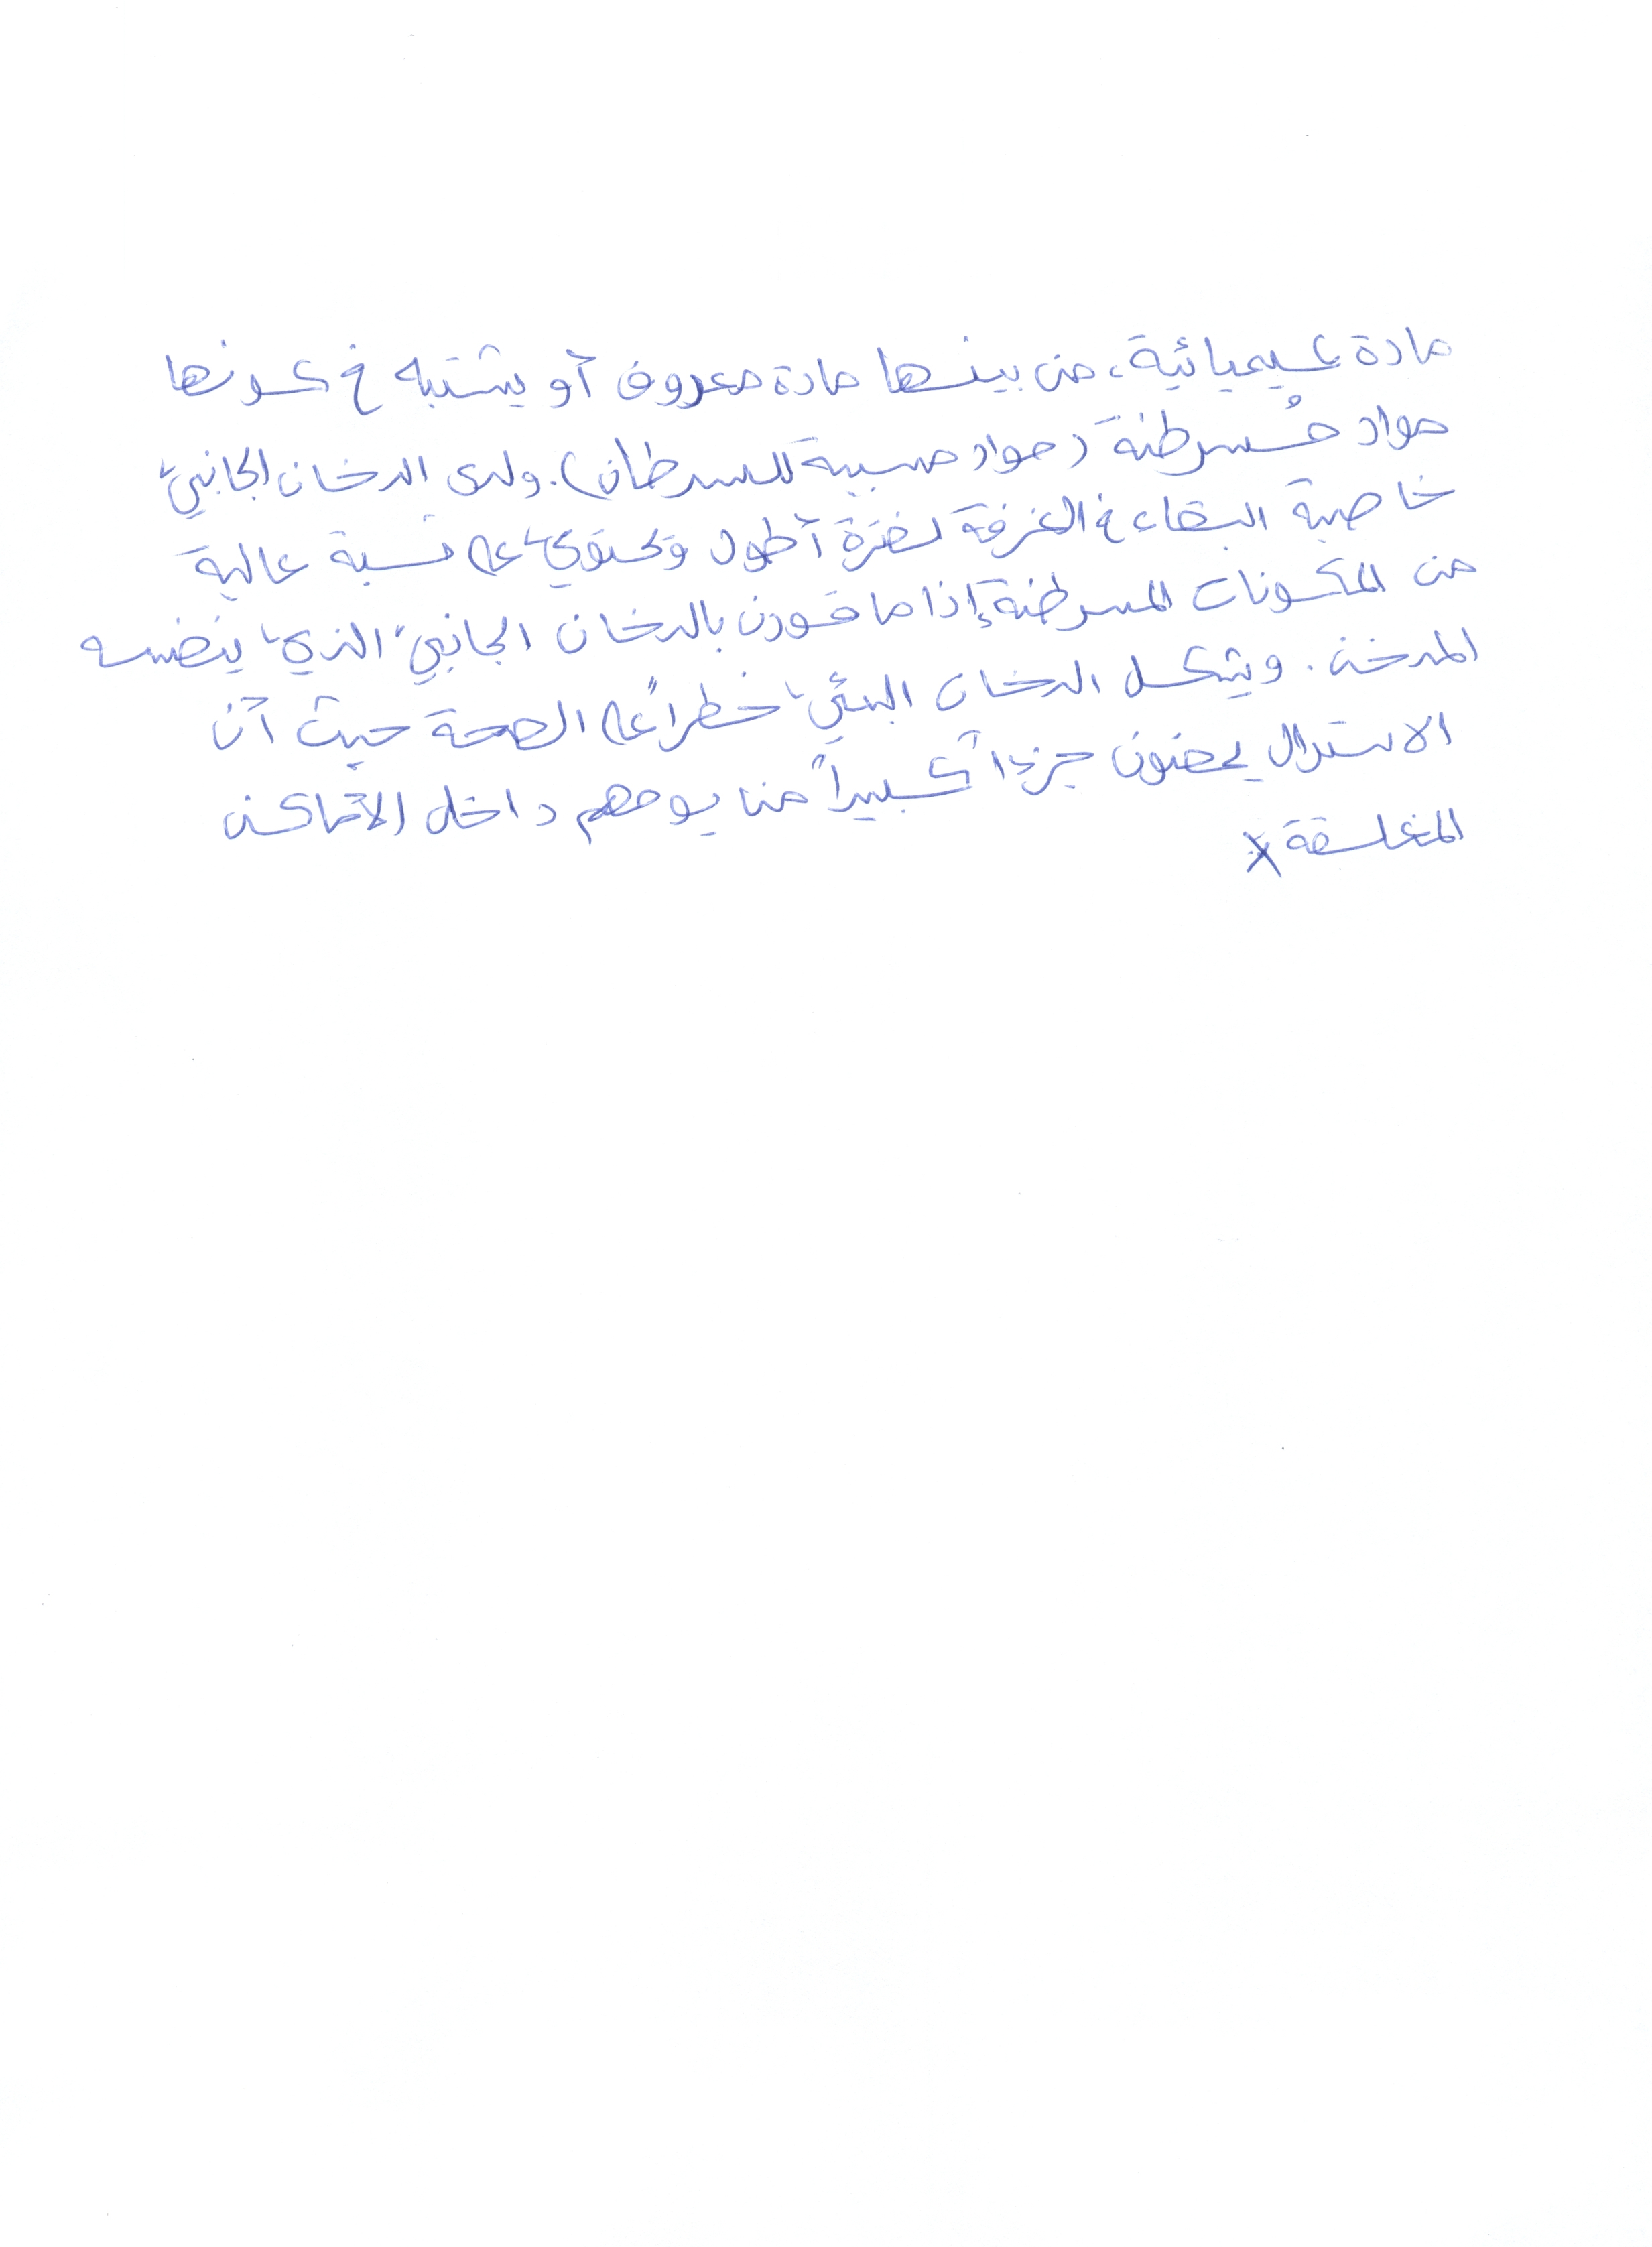 مادة كيميائية، من بينها مادة معروف أو يشتبه في كونها
مواد مُسرطنة (مواد مسببة للسرطان). ولدى الدخان الجانبي
خاصية البقاء في الغرفة لفترة أطول وتحتوي على نسبة عالية
من المكونات المسرطنة إذا ما قورن بالدخان الجانبي الذي ينفسه
المدخن. ويشكل الدخان البيئي خطراً على الصحة حيث أن
الاستدال يحضون جزءاً كبيراً من يومهم داخل الأماكن
المغلقة